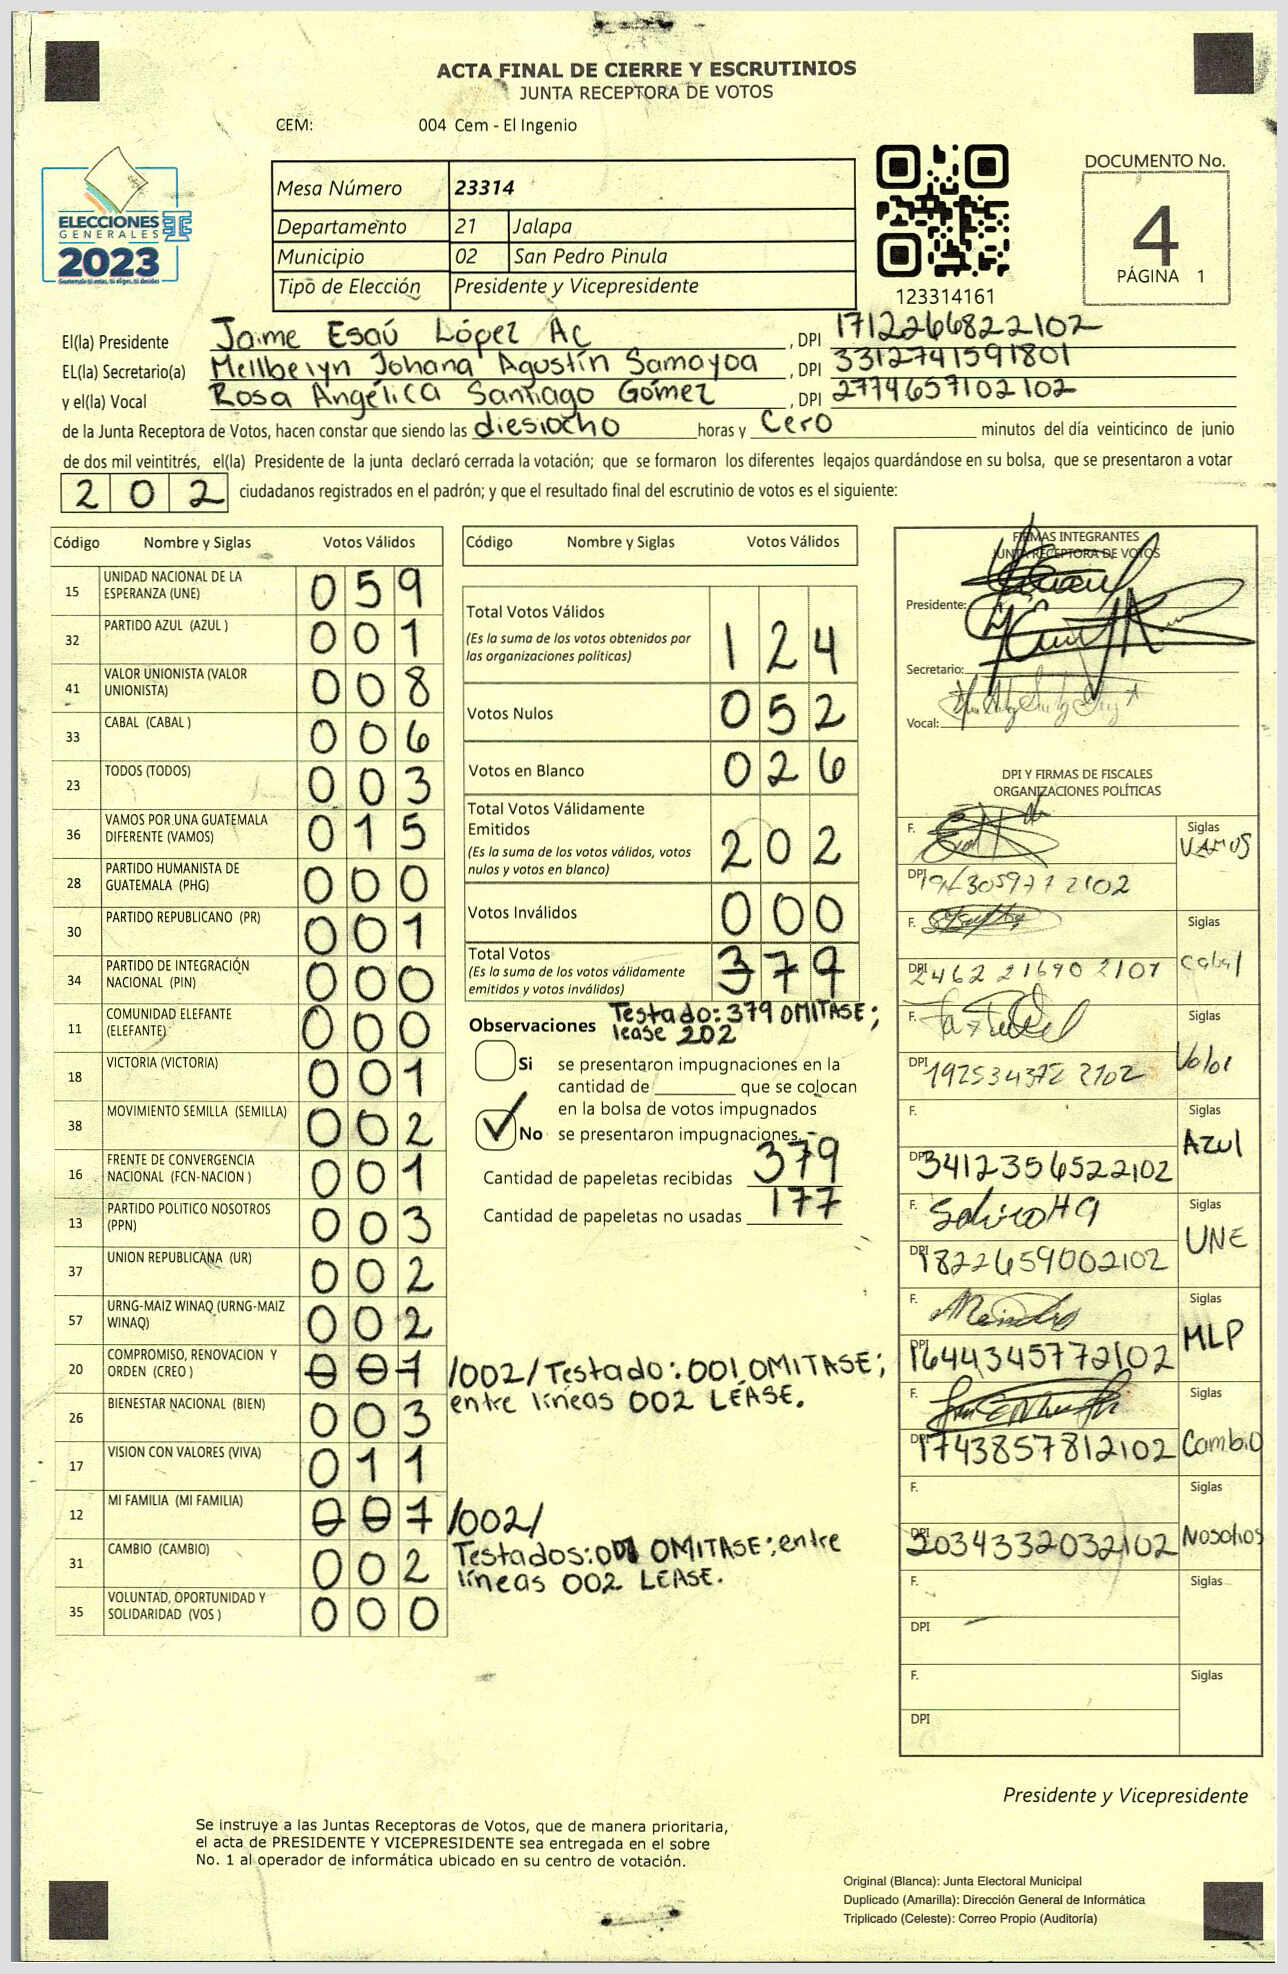 ACTA FINAL DE CIERRE Y ESCRUTINIOS
JUNTA RECEPTORA DE VOTOS
CEM: 004 Cem - El Ingenio
ELECCIONES
GENERALES
2023
Mesa Número 23314
Departamento 21 Jalapa
Municipio 02 San Pedro Pinula
Tipo de Elección Presidente y Vicepresidente
123314161
DOCUMENTO No.
4
PÁGINA 1
El(la) Presidente Jaime Esaú López Ac , DPI 1712266822102
EL(la) Secretario(a) Mellbelyn Johana Agustín Samayoa , DPI 3312741591801
y el(la) Vocal Rosa Angélica Santiago Gómez , DPI 2774657102102
de la Junta Receptora de Votos, hacen constar que siendo las diesiocho horas y Cero minutos del día veinticinco de junio
de dos mil veintitrés, el(la) Presidente de la junta declaró cerrada la votación; que se formaron los diferentes legajos quardándose en su bolsa, que se presentaron a votar
202 ciudadanos registrados en el padrón; y que el resultado final del escrutinio de votos es el siguiente:
Código Nombre y Siglas Votos Válidos
15 UNIDAD NACIONAL DE LA ESPERANZA (UNE) 059
32 PARTIDO AZUL (AZUL ) 001
41 VALOR UNIONISTA (VALOR UNIONISTA) 008
33 CABAL (CABAL ) 006
23 TODOS (TODOS) 003
36 VAMOS POR UNA GUATEMALA DIFERENTE (VAMOS) 015
28 PARTIDO HUMANISTA DE GUATEMALA (PHG) 000
30 PARTIDO REPUBLICANO (PR) 001
34 PARTIDO DE INTEGRACIÓN NACIONAL (PIN) 000
11 COMUNIDAD ELEFANTE (ELEFANTE) 000
18 VICTORIA (VICTORIA) 001
38 MOVIMIENTO SEMILLA (SEMILLA) 002
16 FRENTE DE CONVERGENCIA NACIONAL (FCN-NACION ) 001
13 PARTIDO POLITICO NOSOTROS (PPN) 003
37 UNION REPUBLICANA (UR) 002
57 URNG-MAIZ WINAQ (URNG-MAIZ WINAQ) 002
20 COMPROMISO, RENOVACION Y ORDEN (CREO ) 001 /002/ Testado: 001 OMITASE;
entre líneas 002 LÉASE.
26 BIENESTAR NACIONAL (BIEN) 003
17 VISION CON VALORES (VIVA) 011
12 MI FAMILIA (MI FAMILIA) 001 /002/
Testados: 001 OMITASE; entre
líneas 002 LEASE.
31 CAMBIO (CAMBIO) 002
35 VOLUNTAD, OPORTUNIDAD Y SOLIDARIDAD (VOS ) 000
Código Nombre y Siglas Votos Válidos
Total Votos Válidos 124
(Es la suma de los votos obtenidos por
las organizaciones políticas)
Votos Nulos 052
Votos en Blanco 026
Total Votos Válidamente
Emitidos 202
(Es la suma de los votos válidos, votos
nulos y votos en blanco)
Votos Inválidos 000
Total Votos 379
(Es la suma de los votos válidamente
emitidos y votos inválidos)
Observaciones Testado: 379 OMITASE;
lease 202
Si se presentaron impugnaciones en la
cantidad de que se colocan
en la bolsa de votos impugnados
No se presentaron impugnaciones.
Cantidad de papeletas recibidas 379
Cantidad de papeletas no usadas 177
FIRMAS INTEGRANTES
JUNTA RECEPTORA DE VOTOS
Presidente:
Secretario:
Vocal:
DPI Y FIRMAS DE FISCALES
ORGANIZACIONES POLÍTICAS
F. Siglas VAMOS
DPI
F. Siglas Cabal
DPI 2462 21690 2107
F. Siglas Valor
DPI 192534372 2102
F. Siglas Azul
DPI 3412356522102
F. Siglas UNE
DPI 1822659002102
F. Siglas MLP
DPI 1644345772102
F. Siglas Cambio
DPI 1743857812102
F. Siglas Nosotros
DPI 2034332032102
F. Siglas
DPI
F. Siglas
DPI
Presidente y Vicepresidente
Se instruye a las Juntas Receptoras de Votos, que de manera prioritaria,
el acta de PRESIDENTE Y VICEPRESIDENTE sea entregada en el sobre
No. 1 al operador de informática ubicado en su centro de votación.
Original (Blanca): Junta Electoral Municipal
Duplicado (Amarilla): Dirección General de Informática
Triplicado (Celeste): Correo Propio (Auditoría)